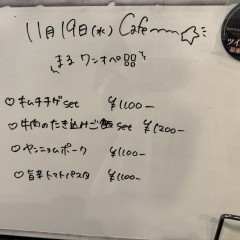 11月19日(水) Cafe
まる ワンオペ
♡キムチチゲset ¥1100-
♡牛肉のたき込みご飯set ¥1200-
♡ヤンニョムポーク ¥1100-
♡旨辛トマトパスタ ¥1100-